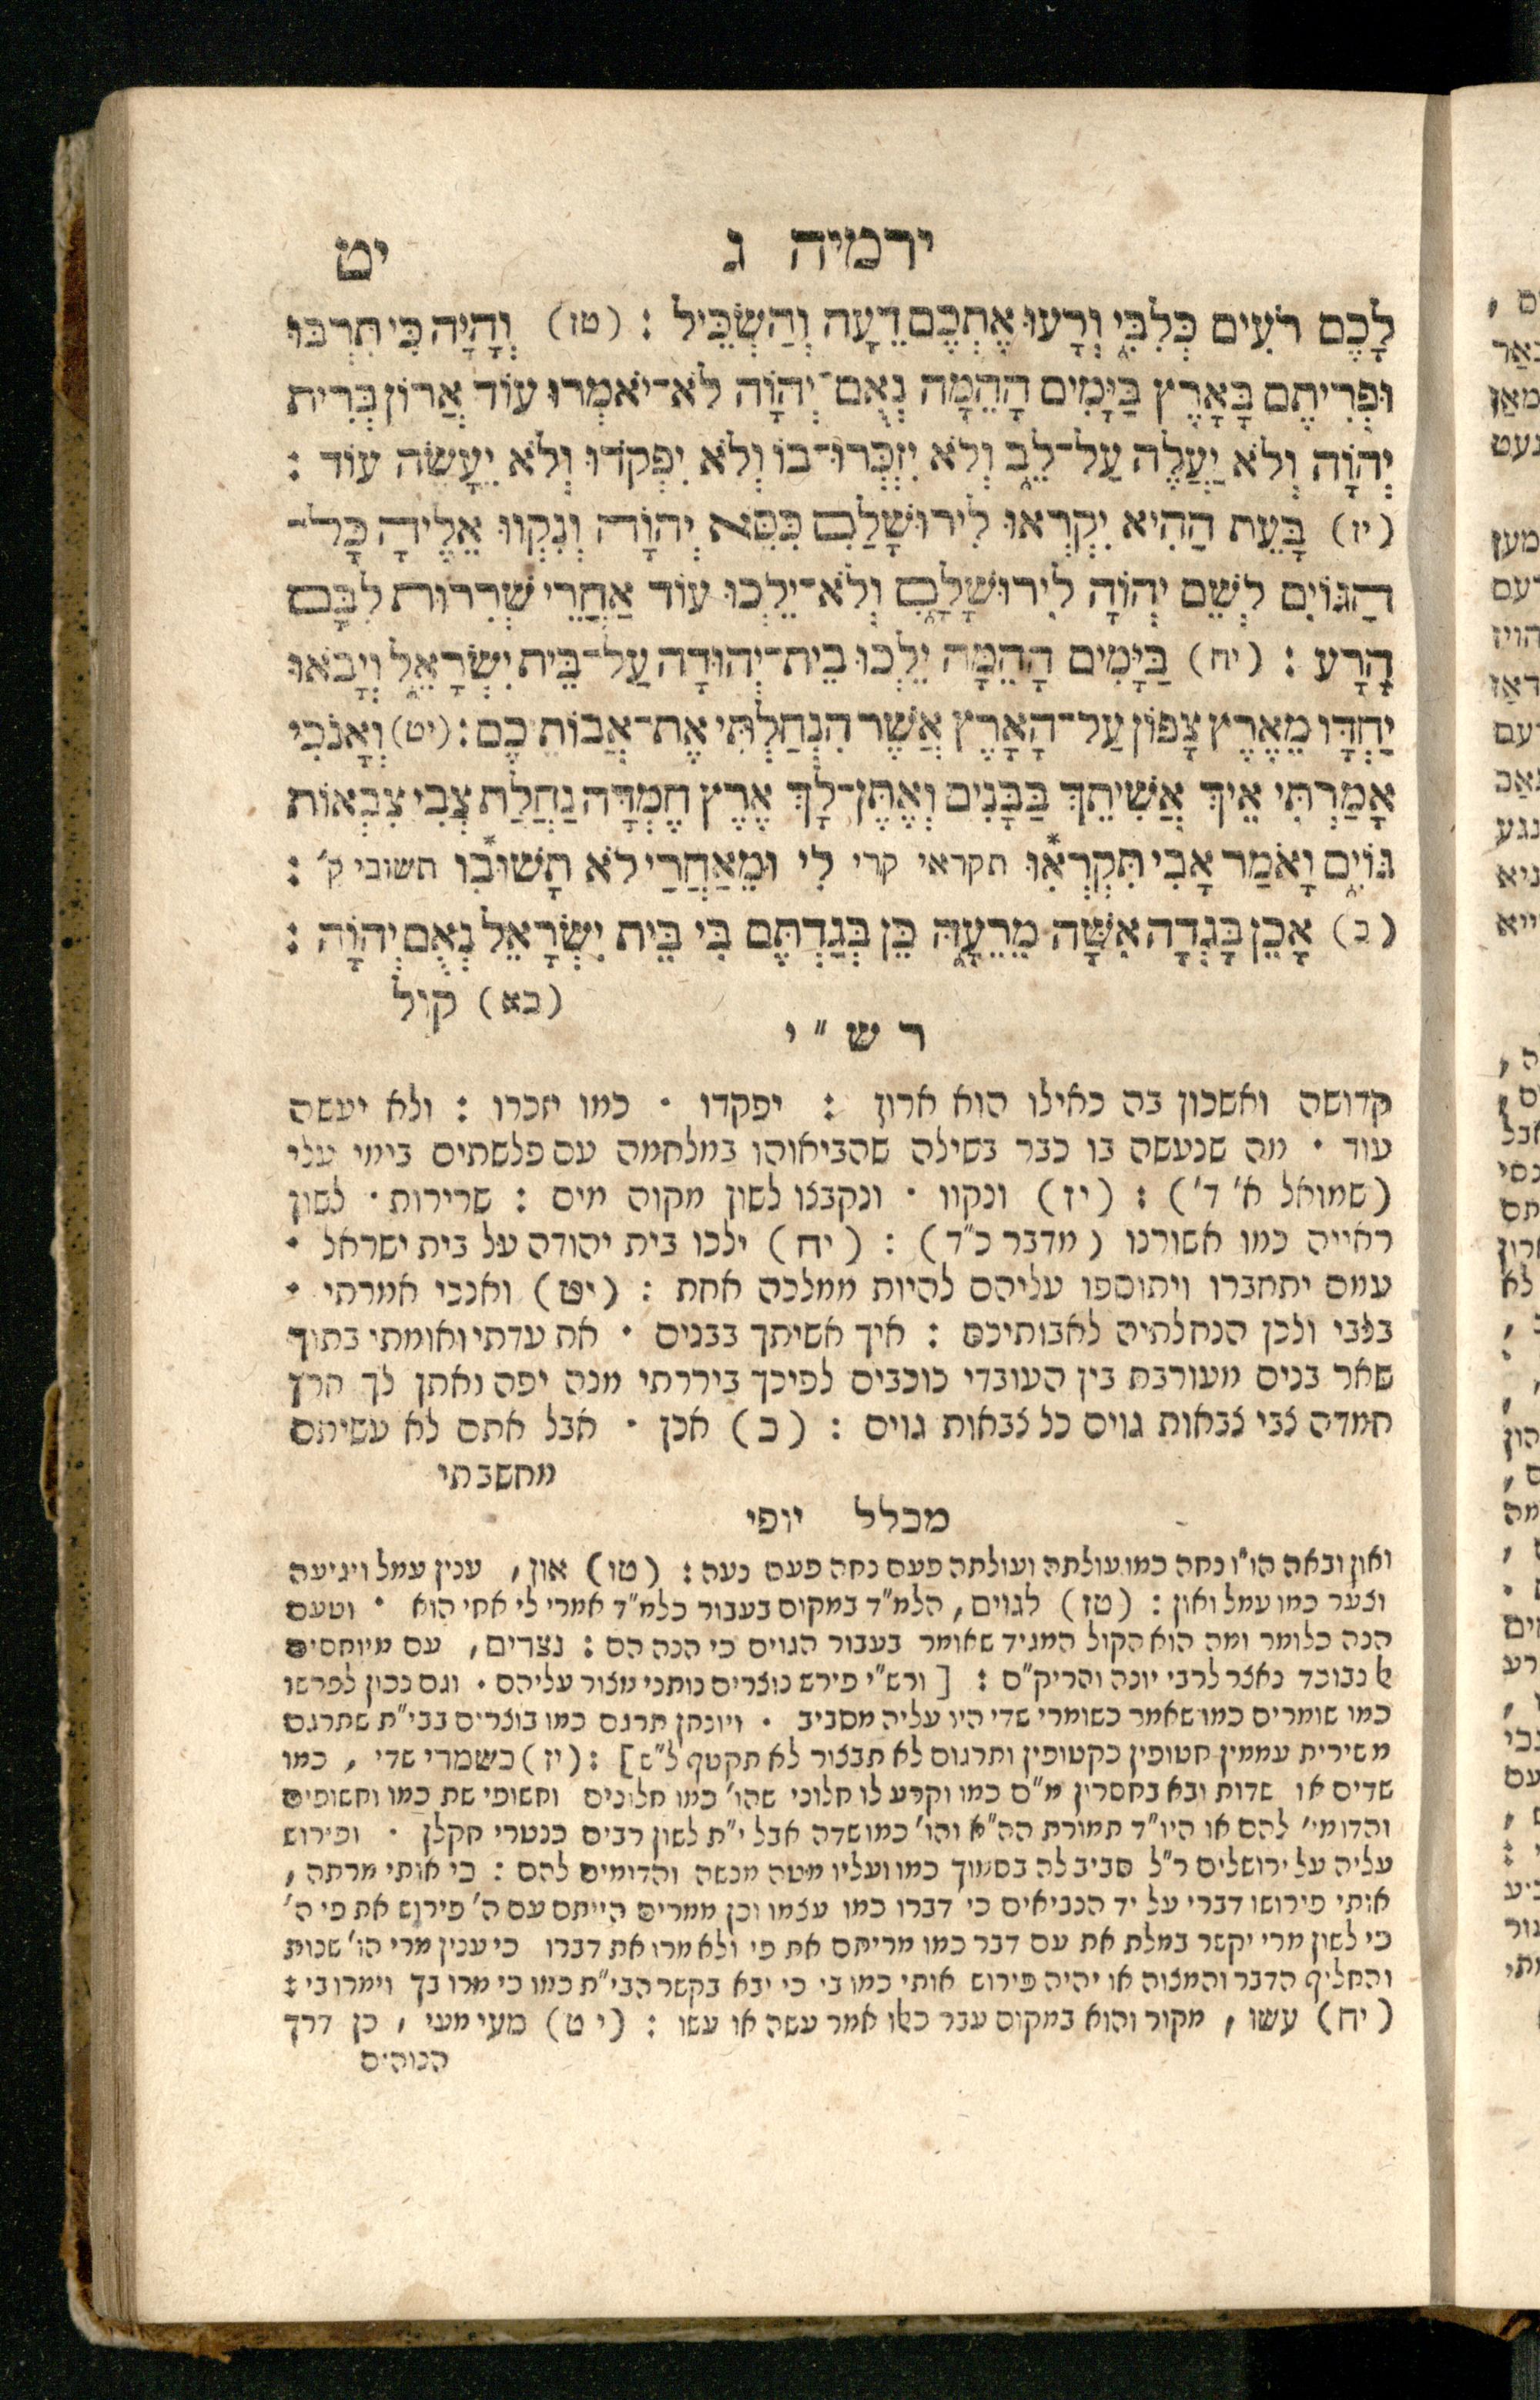 ירמיה ג יט
לָכֶם רֹעִים כְּלִבִּי וְרָעוּ אֶתְכֶם דֵּעָה וְהַשְׂכֵּיל : (טז) וְהָיָה כִּי תִרְבּוּ
וּפְרִיתֶם בָּאָרֶץ בַּיָּמִים הָהֵמָּה נְאֻם־יְהוָֹה לֹא־יֹאמְרוּ עוֹד אֲרוֹן בְּרִית
יְהוָֹה וְלֹא יַעֲלֶה עַל־לֵב וְלֹא יִזְכְּרוּ־בוֹ וְלֹא יִפְקֹדוּ וְלֹא יֵעָשֶׂה עוֹד :
(יז) בָּעֵת הַהִיא יִקְרְאוּ לִירוּשָׁלִַם כִּסֵּא יְהוָֹה וְנִקְווּ אֵלֶיהָ כָּל־
הַגּוֹיִם לְשֵׁם יְהוָֹה לִירוּשָׁלָםִ וְלֹא־יֵלְכוּ עוֹד אַחֲרֵי שְׁרִרוּת לִבָּם
הָרָע : (יח) בַּיָּמִים הָהֵמָּה יֵלְכוּ בֵית־יְהוּדָה עַל־בֵּית יִשְׂרָאֵל וְיָבֹאוּ
יַחְדָּו מֵאֶרֶץ צָפוֹן עַל־הָאָרֶץ אֲשֶׁר הִנְחַלְתִּי אֶת־אֲבוֹתֵיכֶם : (יט) וְאָנֹכִי
אָמַרְתִּי אֵיךְ אֲשִׁיתֵךְ בַּבָּנִים וְאֶתֶּן־לָךְ אֶרֶץ חֶמְדָּה נַחֲלַת צְבִי צִבְאוֹת
גּוֹיִם וָאֹמַר אָבִי תִּקְרְאִוּ* תקראי קרי לִי וּמֵאַחֲרַי לֹא תָשׁוּבִוּ* תשובי ק' :
(כ) אָכֵן בָּגְדָה אִשָּׁה מֵרֵעָהּ כֵּן בְּגַדְתֶּם בִּי בֵּית יִשְׂרָאֵל נְאֻם יְהוָֹה :
(כא) קול
רש"י
קדושה ואשכון בה כאילו הוא ארון : יפקדו · כמו יזכרו : ולא יעשה
עוד · מה שנעשה בו כבר בשילה שהביאוהו במלחמה עם פלשתים בימי עלי
(שמואל א' ד') : (יז) ונקוו · ונקבצו לשון מקוה מים : שרירות · לשון
ראייה כמו אשורנו (מדבר כ"ד) : (יח) ילכו בית יהודה על בית ישראל ·
עמם יתחברו ויתוספו עליהם להיות ממלכה אחת : (יט) ואנכי אמרתי ·
בלבי ולכן הנחלתיה לאבותיכם : איך אשיתך בבנים · את עדתי ואומתי בתוך
שאר בנים מעורבת בין העובדי כוכבים לפיכך ביררתי מנה יפה ואתן לך ארץ
חמדה צבי צבאות גוים כל צבאות גוים : (כ) אכן · אבל אתם לא עשיתם
מחשבתי
מכלל יופי
ואון ובאה הו"ו נחה כמו עולתה ועולתה פעם נחה פעם נעה : (טו) און, ענין עמל ויגיעה
וצער כמו עמל ואון : (טז) לגוים, הלמ"ד במקום בעבור כלמ"ד אמרי לי אחי הוא · וטעם
הנה כלומר ומה הוא הקול המגיד שאומר בעבור הגוים כי הנה הם : נצרים, עם מיוחסים
נבוכד נאצר לרבי יונה והריק"ם : [ורש"י פירש נוצרים נותני מצור עליהם · וגם נכון לפרשו
כמו שומרים כמו שאמר כשומרי שדי היו עליה מסביב · ויונתן תרגם כמו בוצרים בבי"ת שתרגם
משירית עממין חטופין כקטופין ותרגום לא תבצור לא תקטף ל"ש] : (יז) כשמרי שדי, כמו
שדים או שדות ובא בחסרון מ"ם כמו וקרע לו חלוני שהו' כמו חלונים וחשופי שת כמו וחשופים
והדומי' להם או היו"ד תמורת הה"א והו' כמו שדה אבל י"ת לשון רבים כנטרי חקלן · ופירוש
עליה על ירושלים ר"ל סביב לה בסמוך כמו ועליו מטה מנשה והדומים להם : כי אותי מרתה,
אותי פירושו דברי על יד הנביאים כי דברו כמו עצמו וכן ממרים הייתם עם ה' פירוש את פי ה'
כי לשון מרי יקשר במלת את עם דבר כמו מריתם את פי ולא מרו את דברו כי ענין מרי הו' שנות
והחליף הדבר והמצוה או יהיה פירוש אותי כמו בי כי יבא בקשר הבי"ת כמו כי מרו בך וימרו בי :
(יח) עשו, מקור והוא במקום עבר כאלו אמר עשה או עשו : (יט) מעי מעי, כן דרך
הכוהים